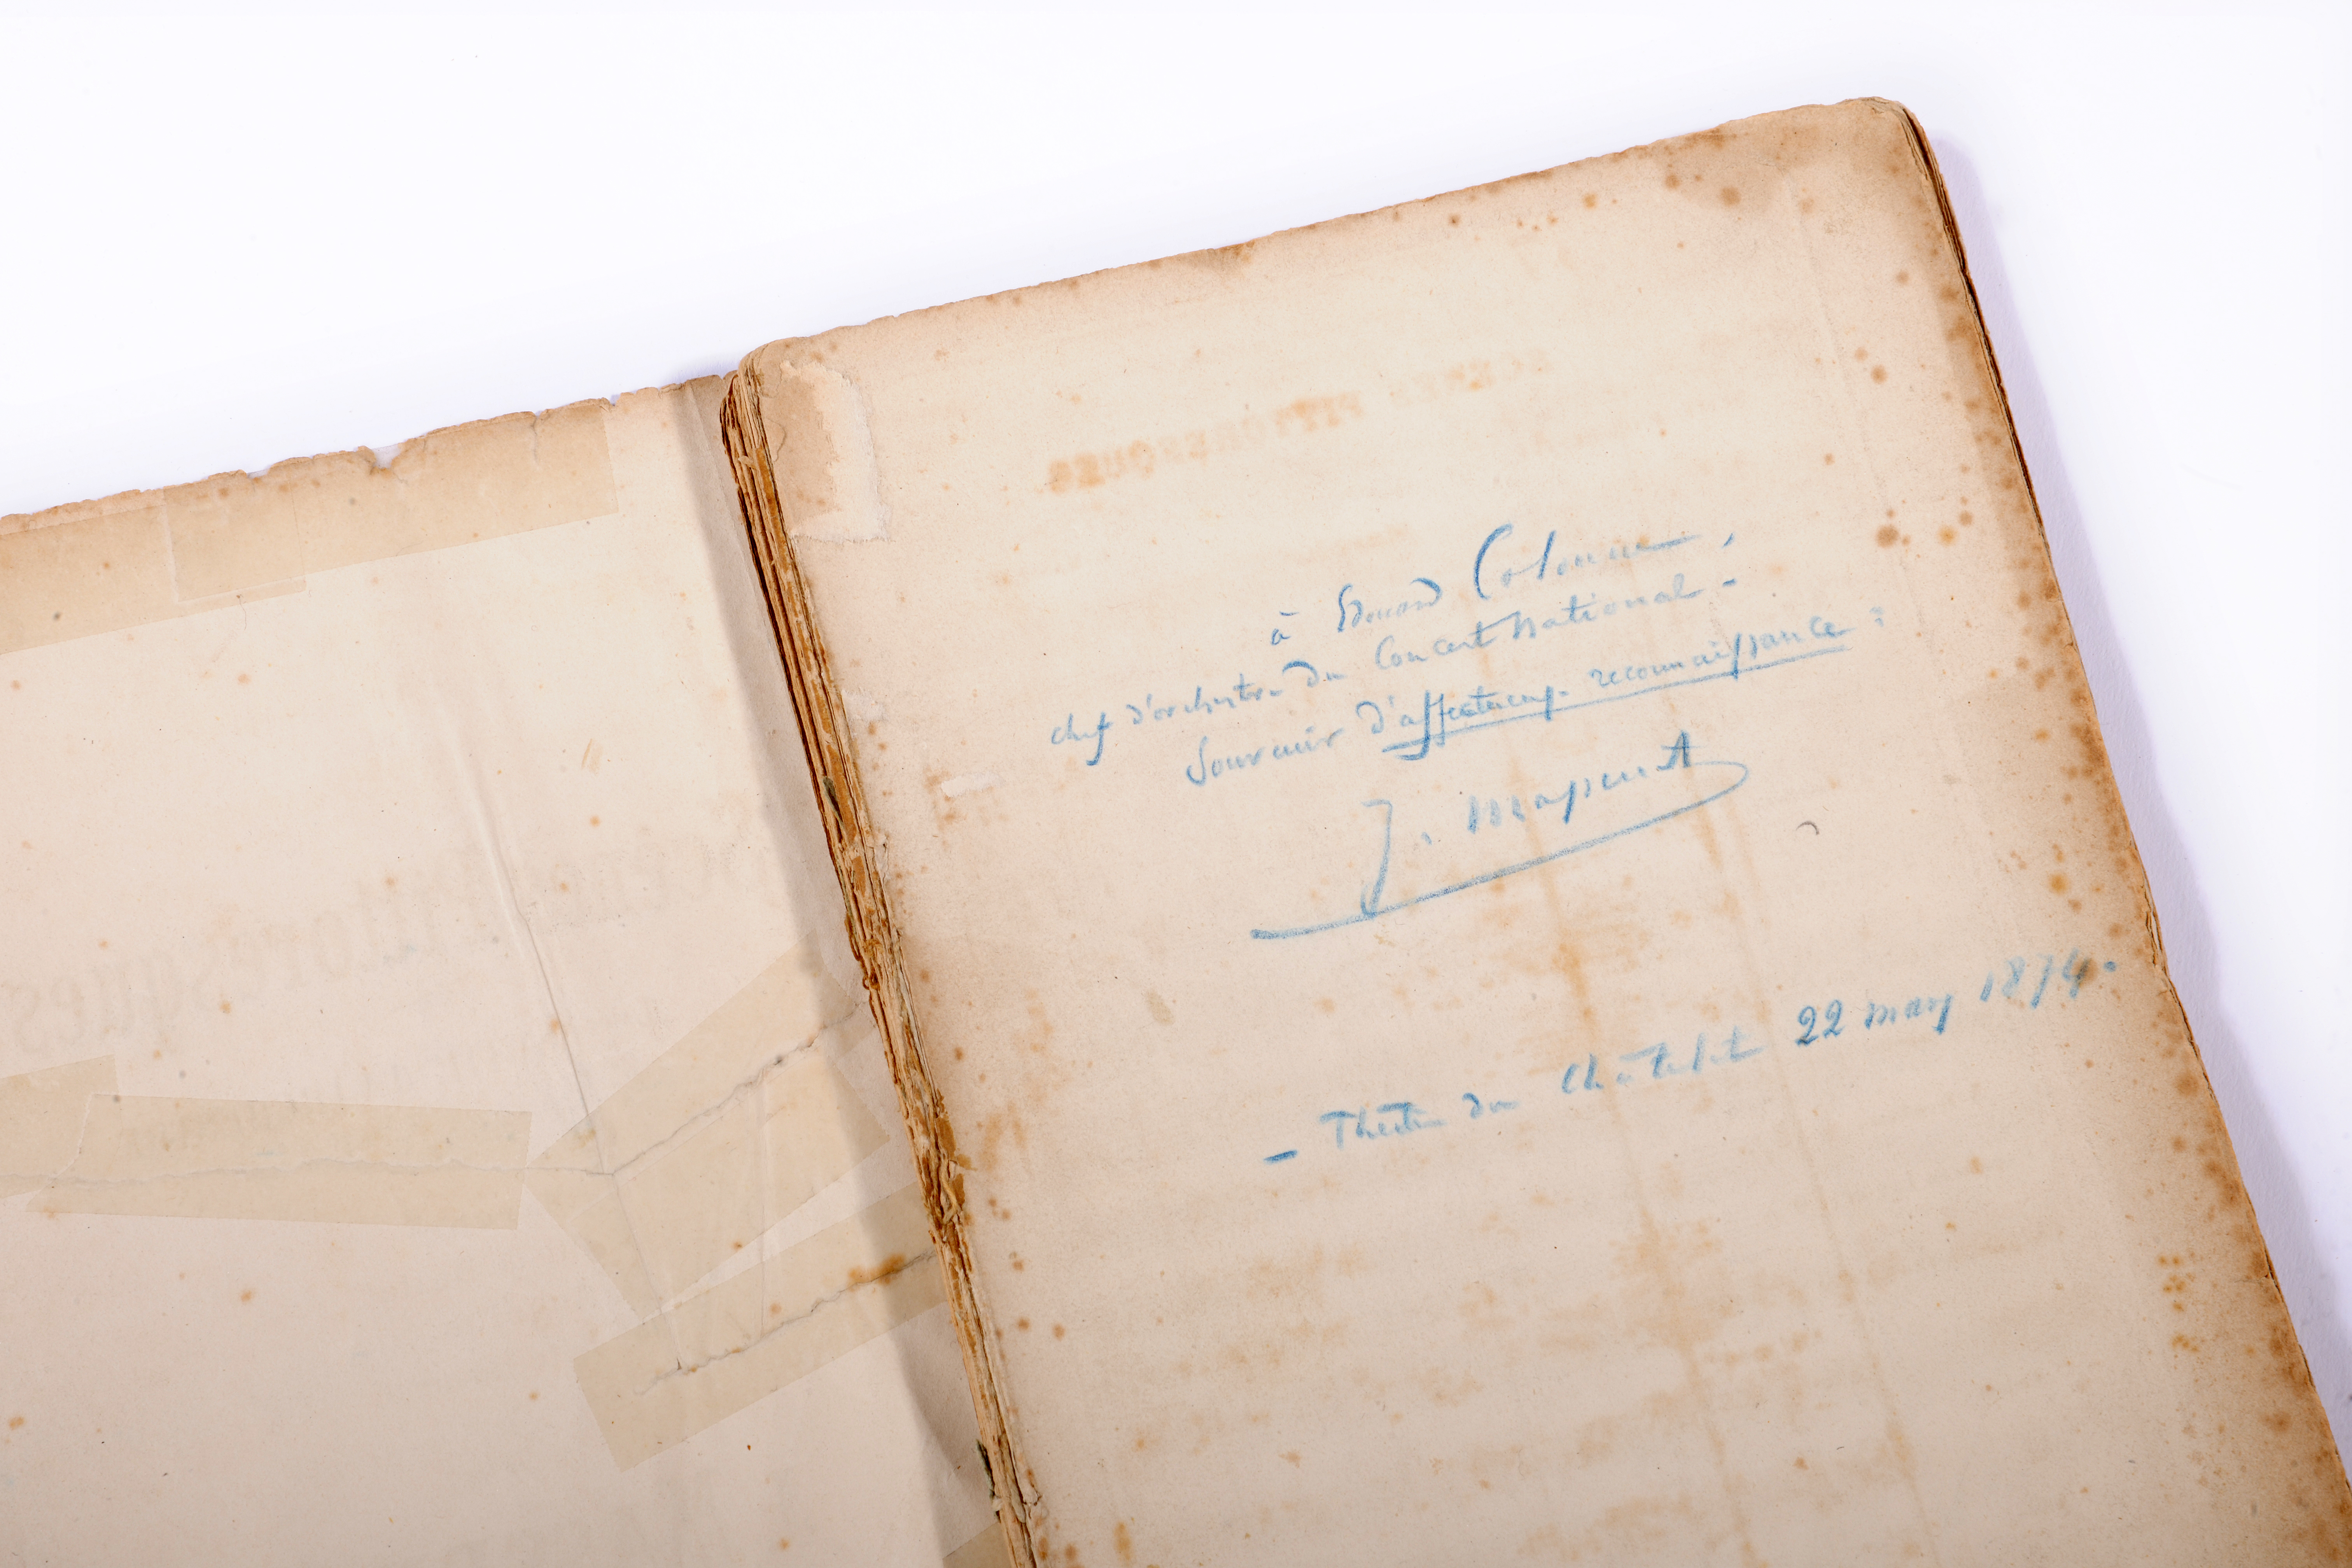 à Edouard Colonne,
chef d'orchestre du Concert National -
Souvenir d'affectueuse reconnaissance :
J. Massenet
- Théâtre du Châtelet 22 mars 1874.
PITTORESQUES
Pittoresques